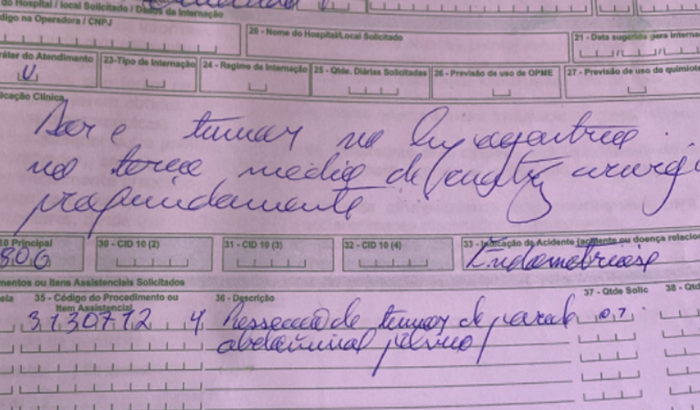 do Hospital / local Solicitado / Dados da Internação
digo na Operadora / CNPJ
20 - Nome do Hospital/Local Solicitado
21 - Data sugerida para Interna
ráter do Atendimento
23-Tipo de Internação
24 - Regime de Internação
25 - Qtde. Diárias Solicitadas
26 - Previsão de uso de OPME
27 - Previsão de uso de quimiote
U
icação Clínica
Dor e tumor no hipogastrio
no terço medio da cirurgi
profundamente
10 Principal
30 - CID 10 (2)
31 - CID 10 (3)
32 - CID 10 (4)
33 - Indicação de Acidente (acidente ou doença relacion
806
Endometriose
mentos ou Itens Assistenciais Solicitados
ela
35 - Código do Procedimento ou
Item Assistencial
36 - Descrição
37 - Qtde Solic
38 - Qtd
Ressecção de tumor de parede
abdominal pelvico